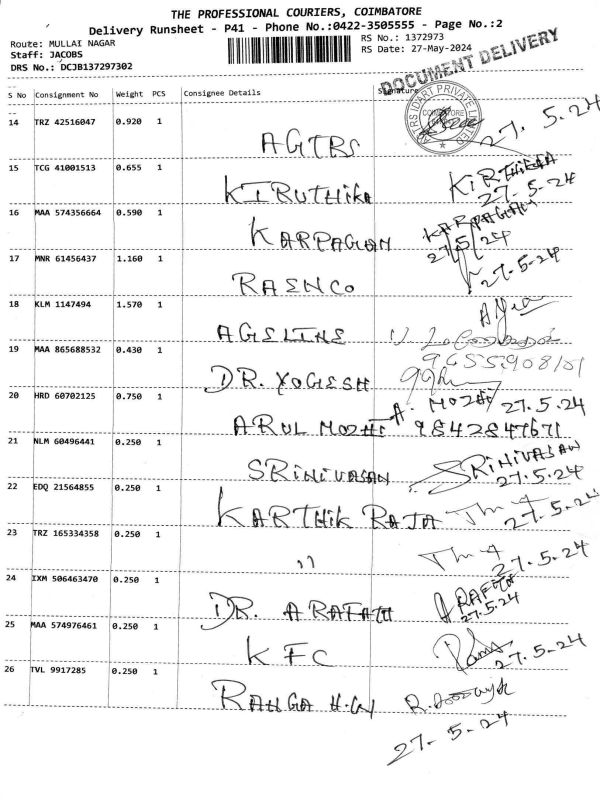 THE PROFESSIONAL COURIERS, COIMBATORE
Delivery Runsheet - P41 - Phone No.:0422-3505555 - Page No.:2
Route: MULLAI NAGAR
Staff: JACOBS
DRS No.: DCJB137297302
RS No.: 1372973
RS Date: 27-May-2024
DOCUMENT DELIVERY
S No Consignment No Weight PCS Consignee Details Signature
14 TRZ 42516047 0.920 1
AGTBS 27.5.24
15 TCG 41001513 0.655 1
KIRUTHIKA KIRTHIKA
27-5-24
16 MAA 574356664 0.590 1
KARPAGAM KARPAGAM
27/5/24
17 MNR 61456437 1.160 1
RAENCO 27-5-24
18 KLM 1147494 1.570 1
AGELINE
19 MAA 865688532 0.430 1
DR. YOGESH
20 HRD 60702125 0.750 1
ARUL MOZHI A. MOZHI 27.5.24
9842847671
21 NLM 60496441 0.250 1
SRINIVASAN SRINIVASAN
27.5.24
22 EDQ 21564855 0.250 1
KARTHIK RAJA 27.5.24
23 TRZ 165334358 0.250 1
,, 27.5.24
24 IXM 506463470 0.250 1
DR. ARAFATH ARAFTH
27.5.24
25 MAA 574976461 0.250 1
KFC 27.5.24
26 TVL 9917285 0.250 1
RANGA
27.5.24